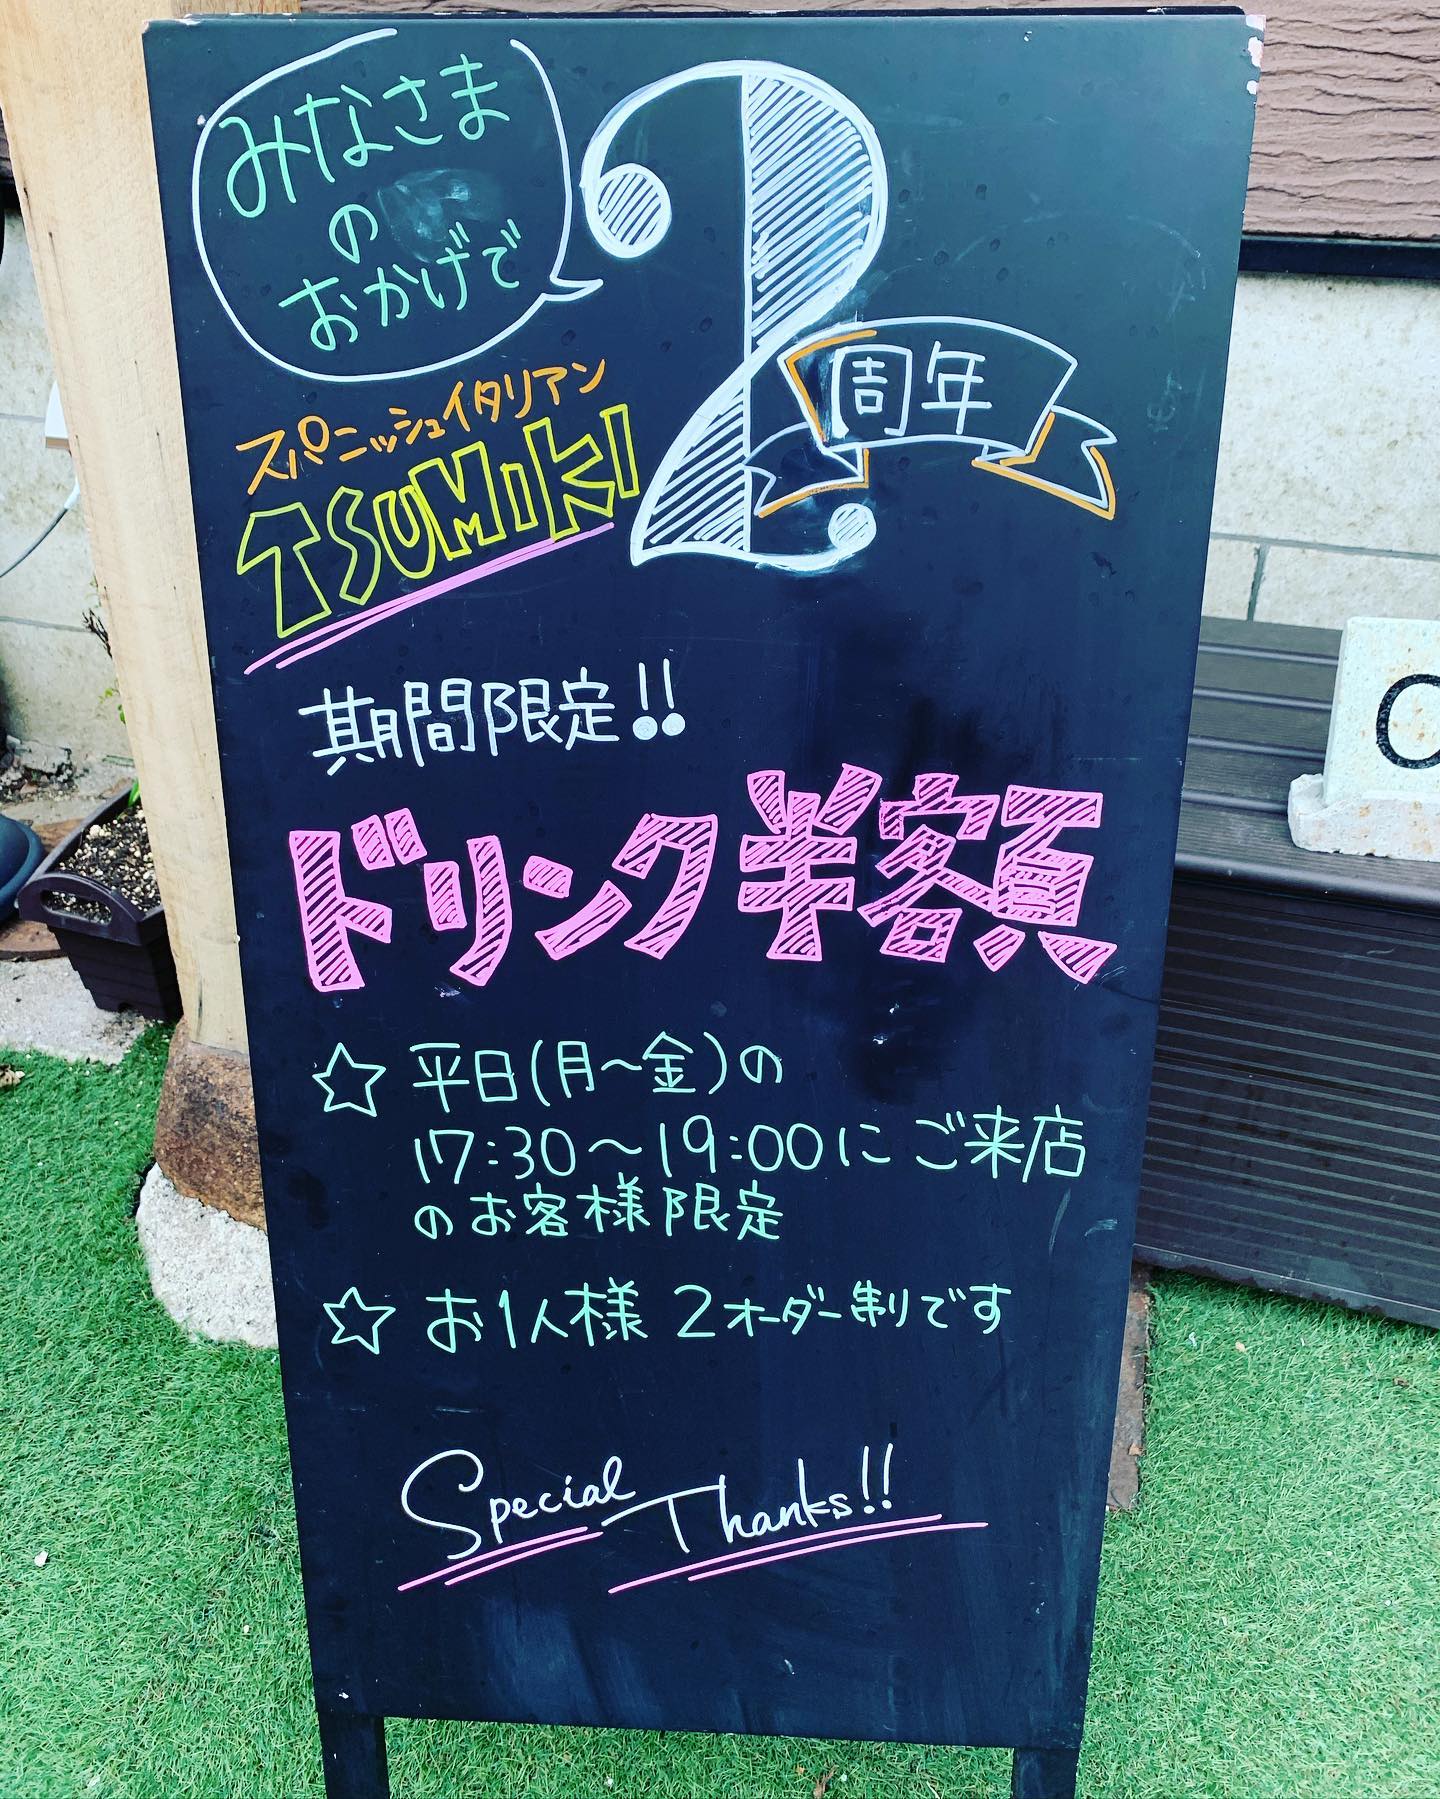 みなさま
の
おかげで
2
周年
スパニッシュイタリアン
TSUMIKI
期間限定!!
ドリンク半額
☆ 平日(月〜金)の
17:30〜19:00にご来店
のお客様限定
☆ お1人様 2オーダー制りです
Special Thanks!!